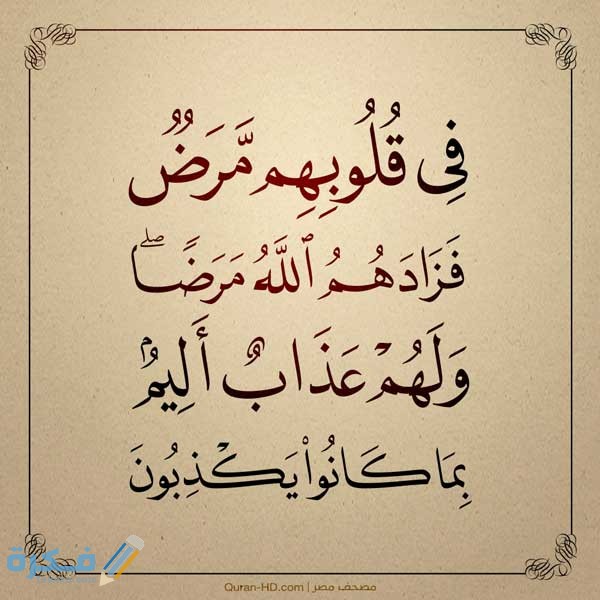 فِى قُلُوبِهِم مَّرَضٌ
فَزَادَهُمُ ٱللَّهُ مَرَضًاۖ
وَلَهُمْ عَذَابٌ أَلِيمٌۢ
بِمَا كَانُوا۟ يَكْذِبُونَ
فكرة
Quran-HD.com | مصحف مصر